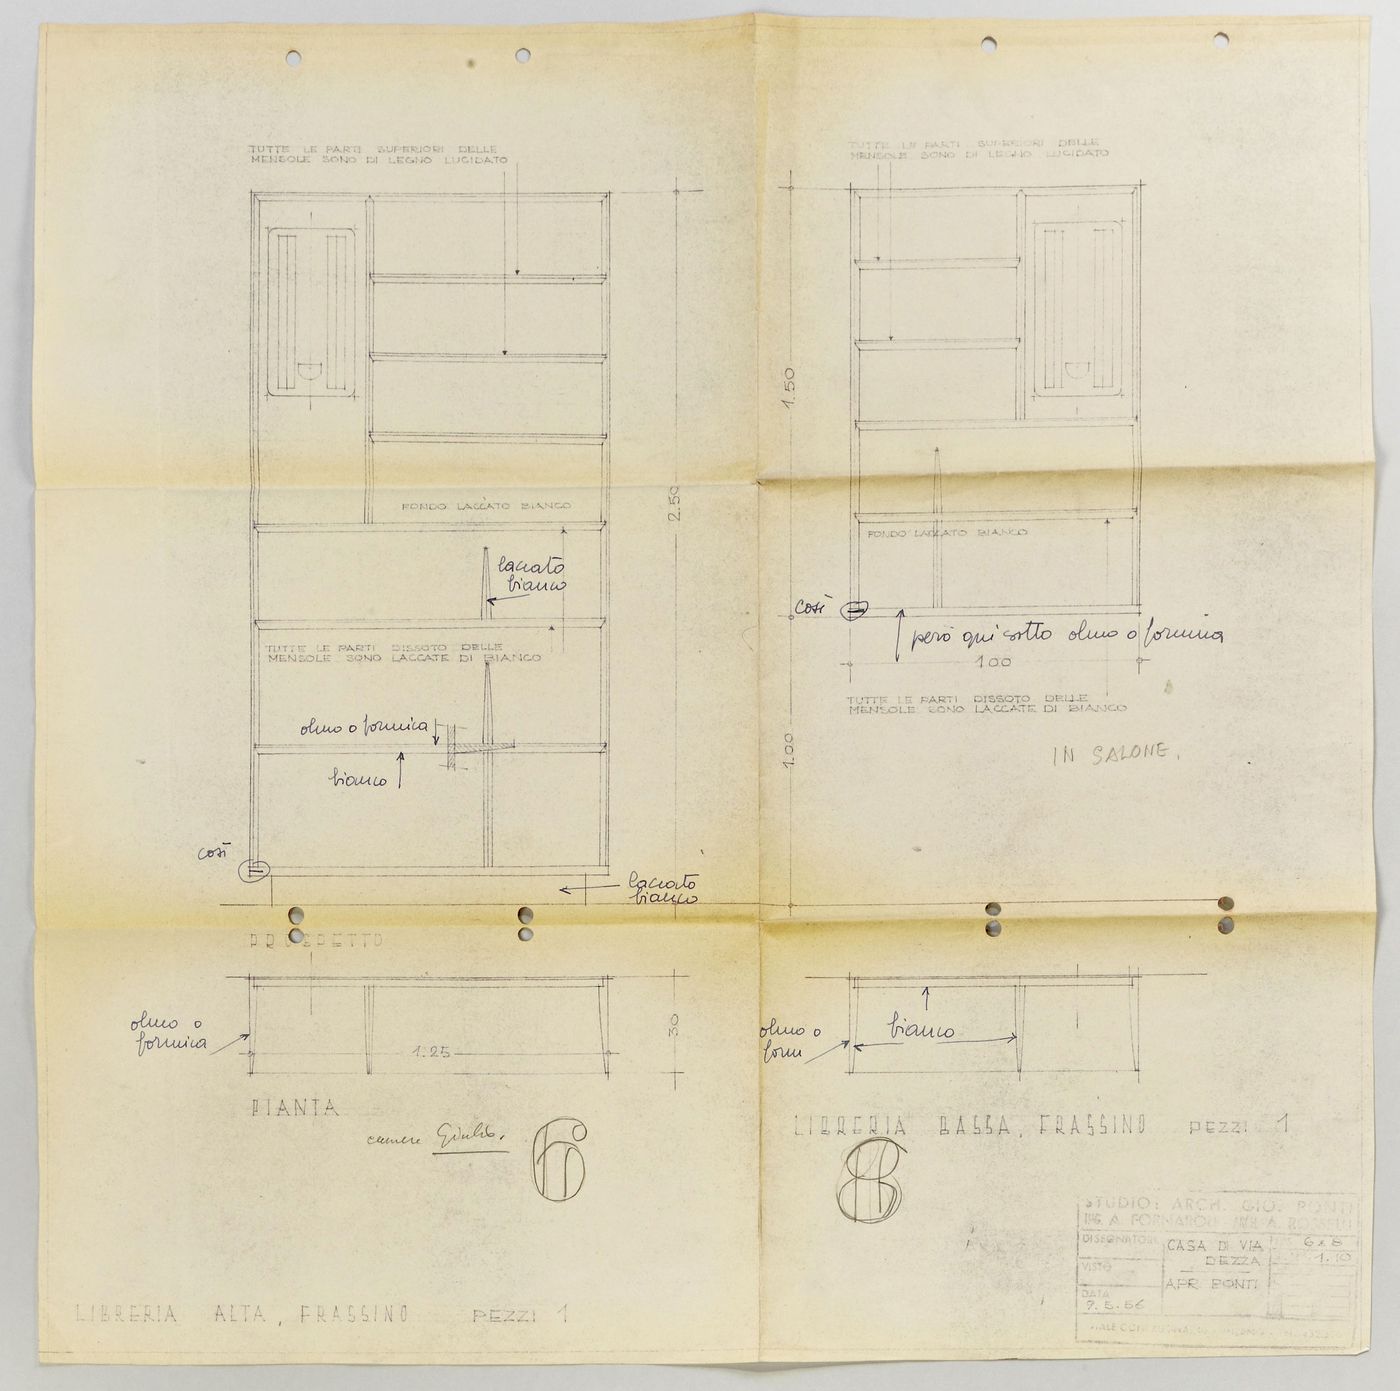 TUTTE LE PARTI SUPERIORI DELLE
MENSOLE SONO DI LEGNO LUCIDATO
2.50
FONDO LACCATO BIANCO
laccato
bianco
TUTTE LE PARTI DISSOTO DELLE
MENSOLE SONO LACCATE DI BIANCO
olmo o formica
bianco
così
laccato
bianco
PROSPETTO
olmo o
formica
1.25
30
PIANTA
camere Giulio.
6
LIBRERIA ALTA, FRASSINO PEZZI 1
TUTTE LE PARTI SUPERIORI DELLE
MENSOLE SONO DI LEGNO LUCIDATO
1.50
FONDO LACCATO BIANCO
così
però qui sotto olmo o formica
100
TUTTE LE PARTI DISSOTO DELLE
MENSOLE SONO LACCATE DI BIANCO
1.00
IN SALONE.
olmo o
form
bianco
LIBRERIA BASSA, FRASSINO PEZZI 1
8
STUDIO: ARCH. GIO. PONTI
ING. A. FORNAROLI ING. A. ROSSELLI
DISEGNATORE
CASA DI VIA
DEZZA
6 e 8
1.10
VISTO
APR PONTI
DATA
9.5.56